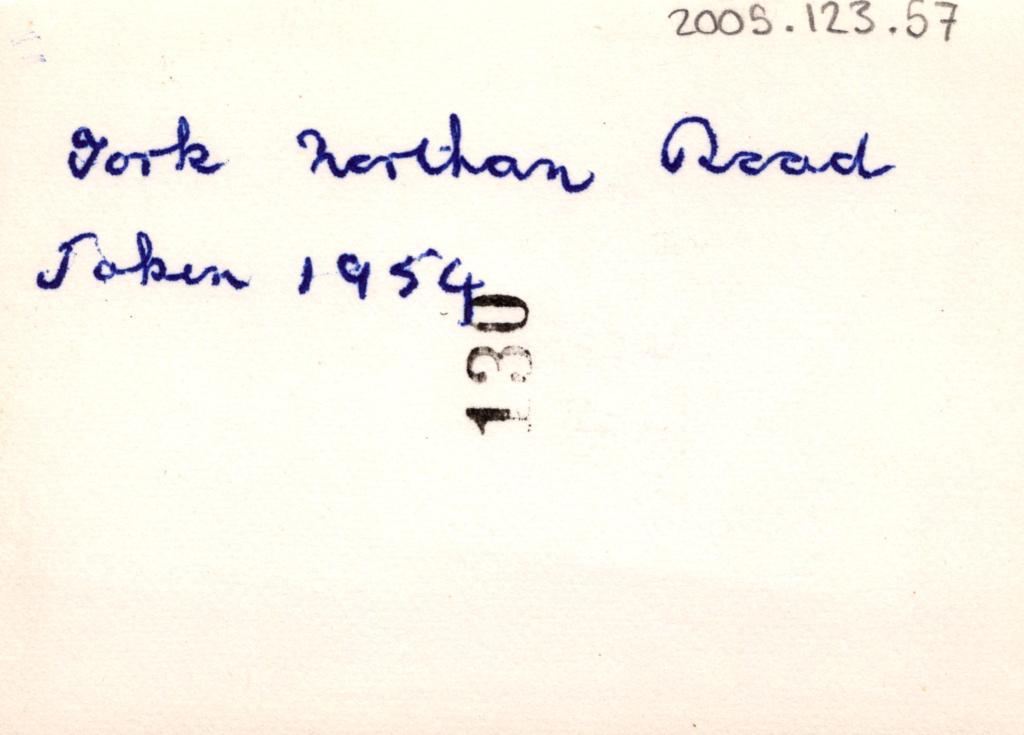 2005.123.57
York Northan Road
Taken 1954
130